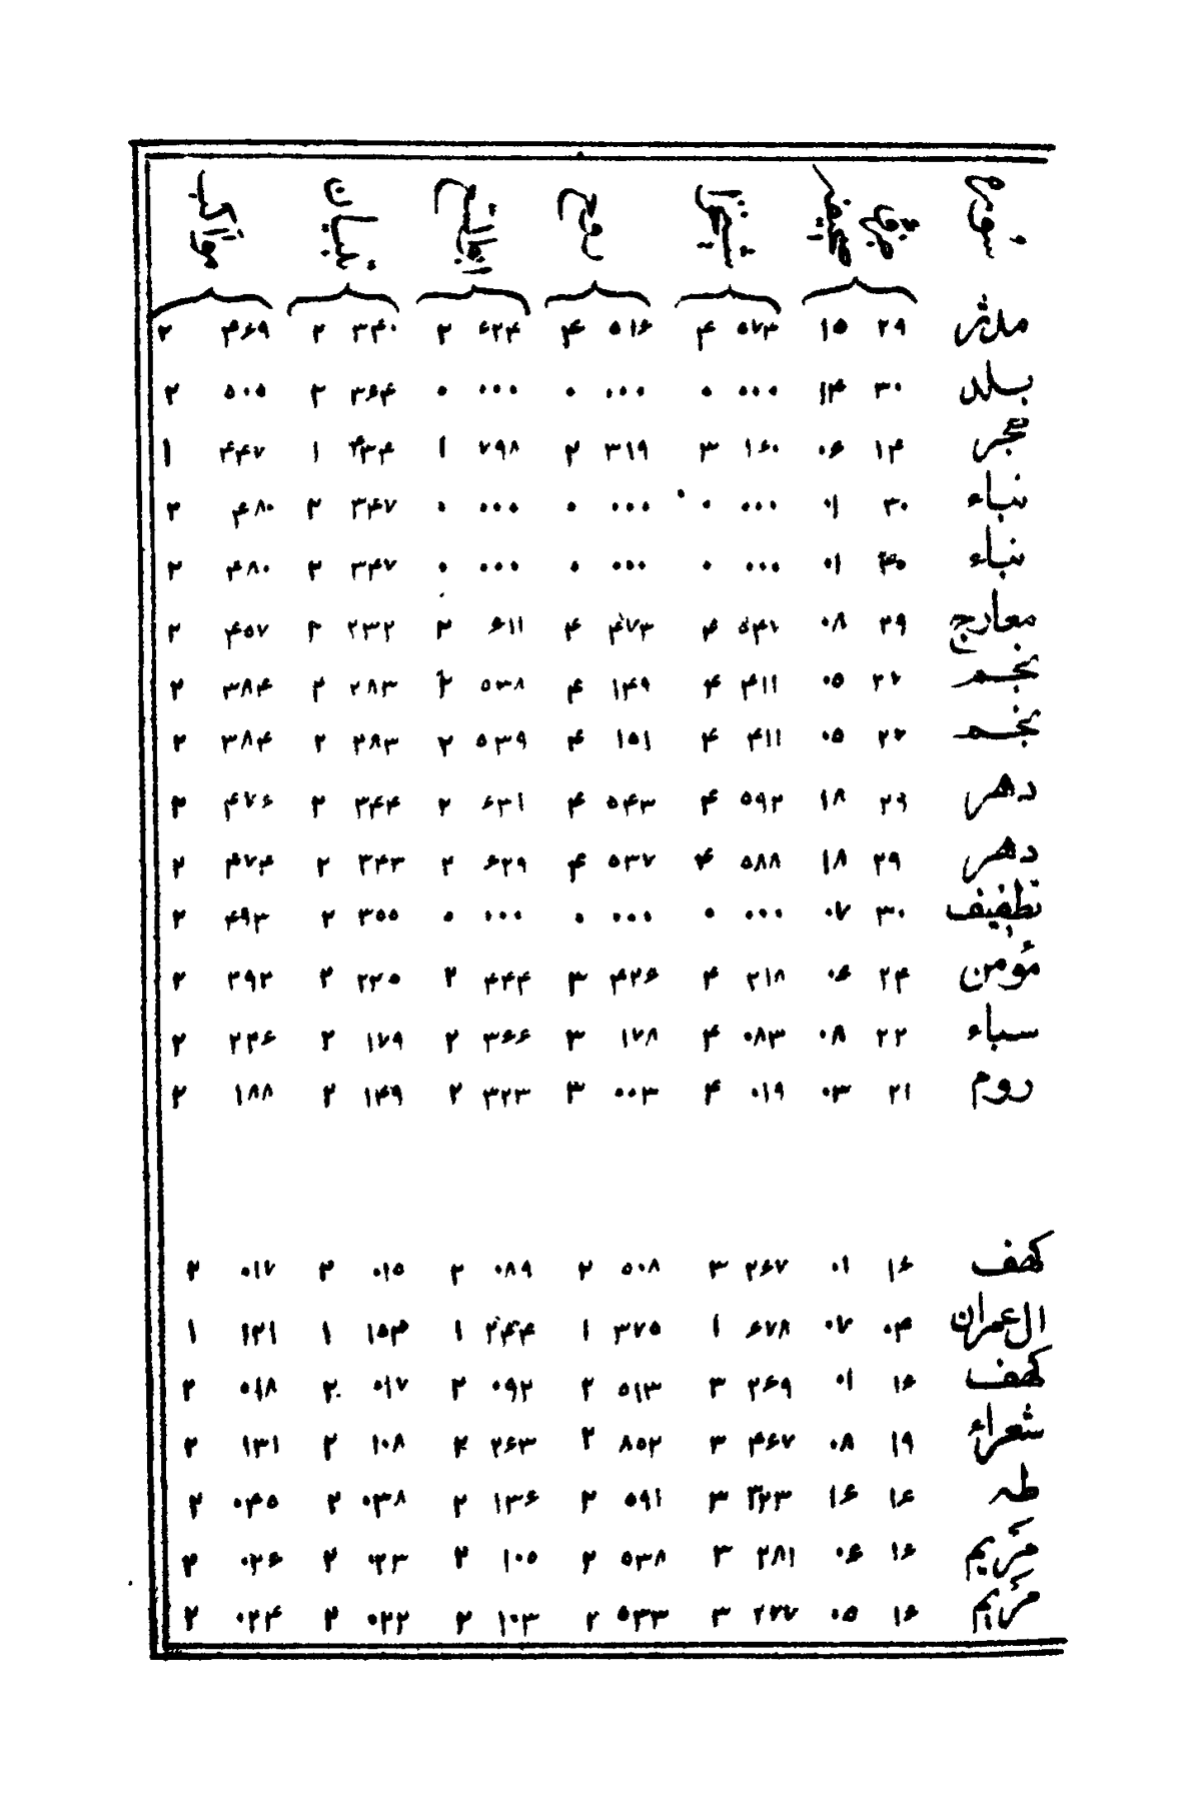 سوره جزوه کشف الایات شریف روح البیان تبیان مواکب
مدثر ۲۹ ۱۵ ۵۷۳ ۴ ۵۱۶ ۴ ۶۲۴ ۲ ۳۴۰ ۲ ۴۶۹ ۲
بلد ۳۰ ۱۴ ۰۰۰ ۰ ۰۰۰ ۰ ۰۰۰ ۰ ۳۶۴ ۲ ۵۰۵ ۲
حجر ۱۴ ۰۶ ۱۶۰ ۳ ۳۱۹ ۲ ۷۹۸ ۱ ۴۳۴ ۱ ۴۴۷ ۱
نباء ۳۰ ۰۱ ۰۰۰ ۰ ۰۰۰ ۰ ۰۰۰ ۰ ۳۴۷ ۲ ۴۸۰ ۲
نباء ۴۰ ۰۱ ۰۰۰ ۰ ۰۰۰ ۰ ۰۰۰ ۰ ۳۴۷ ۲ ۴۸۰ ۲
معارج ۲۹ ۰۸ ۵۴۲ ۴ ۴۷۳ ۴ ۶۱۱ ۲ ۲۳۲ ۲ ۴۵۷ ۲
نجم ۲۷ ۰۵ ۴۱۱ ۴ ۱۴۹ ۴ ۵۳۸ ۲ ۲۸۳ ۲ ۳۸۴ ۲
نجم ۲۷ ۰۵ ۴۱۱ ۴ ۱۵۱ ۴ ۵۳۹ ۲ ۲۸۳ ۲ ۳۸۴ ۲
دهر ۲۹ ۱۸ ۵۹۲ ۴ ۵۴۳ ۴ ۶۳۱ ۲ ۳۴۴ ۲ ۴۷۶ ۲
دهر ۲۹ ۱۸ ۵۸۸ ۴ ۵۳۷ ۴ ۶۲۹ ۲ ۳۴۳ ۲ ۴۷۴ ۲
تطفیف ۳۰ ۰۷ ۰۰۰ ۰ ۰۰۰ ۰ ۰۰۰ ۰ ۳۵۵ ۲ ۴۹۳ ۲
مؤمن ۲۴ ۰۶ ۲۱۸ ۴ ۴۲۶ ۳ ۴۴۴ ۲ ۲۲۵ ۲ ۲۹۲ ۲
سباء ۲۲ ۰۸ ۰۸۳ ۴ ۱۷۸ ۳ ۳۶۶ ۲ ۱۷۹ ۲ ۲۴۶ ۲
روم ۲۱ ۰۳ ۰۱۹ ۴ ۰۰۳ ۳ ۳۲۳ ۲ ۱۴۹ ۲ ۱۸۸ ۲
کهف ۱۶ ۰۱ ۲۶۷ ۳ ۵۰۸ ۲ ۰۸۹ ۲ ۰۱۵ ۲ ۰۱۷ ۲
ال عمران ۰۴ ۰۷ ۶۷۸ ۱ ۳۷۵ ۱ ۲۴۴ ۱ ۱۵۳ ۱ ۱۲۱ ۱
کهف ۱۶ ۰۱ ۲۶۹ ۳ ۵۱۳ ۲ ۰۹۲ ۲ ۰۱۷ ۲ ۰۱۸ ۲
شعراء ۱۹ ۰۸ ۴۶۷ ۳ ۸۵۲ ۲ ۲۶۳ ۲ ۱۰۸ ۲ ۱۳۱ ۲
طه ۱۶ ۱۶ ۳۲۳ ۳ ۵۹۱ ۲ ۱۳۶ ۲ ۰۳۸ ۲ ۰۴۵ ۲
مریم ۱۶ ۰۶ ۲۸۱ ۳ ۵۳۸ ۲ ۱۰۵ ۲ ۰۲۳ ۲ ۰۲۶ ۲
مریم ۱۶ ۰۵ ۲۷۷ ۳ ۵۳۳ ۲ ۱۰۳ ۲ ۰۲۲ ۲ ۰۲۴ ۲